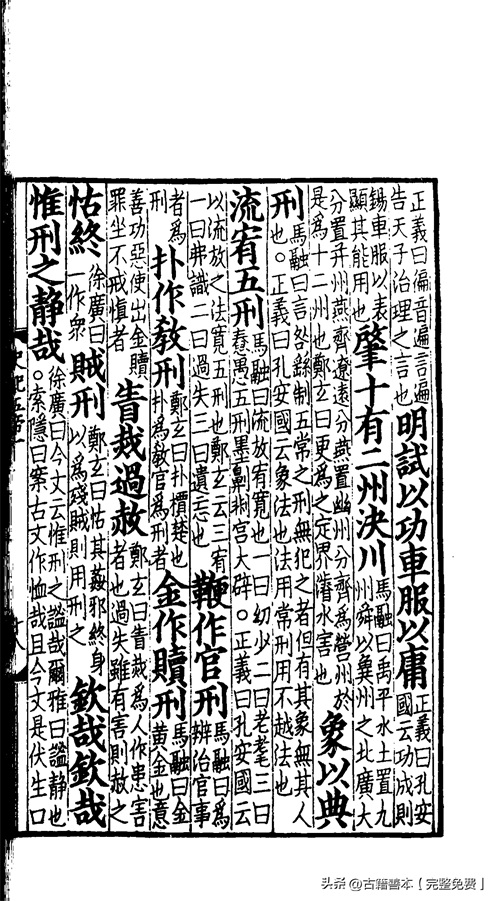 正義曰徧音遍言遍告天子治理之言也明試以功車服以庸正義曰孔安國云功成則
錫車服以表顯其能用也肇十有二州決川馬融曰禹平水土置九州舜以冀州之北廣大
分置并州燕齊遼遠分燕置幽州分齊爲營州於是爲十二州也鄭玄曰更爲之定界濬水害也象以典
刑馬融曰言咎繇制五常之刑無犯之者但有其象無其人也。正義曰孔安國云象法也法用常刑用不越法也
流宥五刑馬融曰流放宥寬也一曰幼少二曰老耄三曰蠢愚五刑墨劓剕宮大辟。正義曰孔安國云
以流放之法寬五刑也鄭玄云三宥一曰弗識二曰過失三曰遺忘也鞭作官刑馬融曰爲辨治官事
者爲刑扑作教刑鄭玄曰扑檟楚也扑爲教官爲刑者金作贖刑馬融曰金黃金也意
善功惡使出金贖罪坐不戒慎者眚烖過赦鄭玄曰眚烖爲人作患害者也過失雖有害則赦之
怙終徐廣曰一作衆賊刑鄭玄曰怙其姦邪終身以爲殘賊則用刑之欽哉欽哉
惟刑之靜哉徐廣曰今文云惟刑之謐哉爾雅曰謐靜也。索隱曰案古文作恤哉且今文是伏生口
史記五帝一
十八
头条@古籍善本【完整免费】